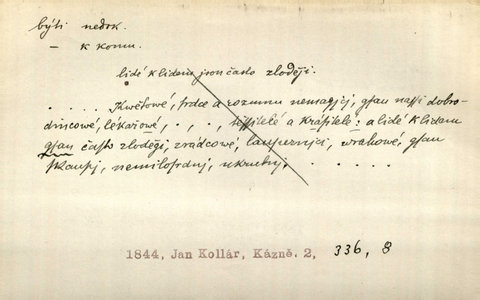 býti nedok.
– k komu.
lidé k lidem jsou často zloději.
. . . . Kwětowé, srdce a rozumu nemagjcj, gsau nassi dobro-
dincowé, lékařowé, . , . , těssitelé a krássitelé: a lidé k lidem
gsau často zloděgi, zrádcowé, laupežnjci, wrahowé, gsau
skaupj, nemilosrdnj, ukrutnj, . . . . .
1844, Jan Kollár, Kázně. 2, 336, 8